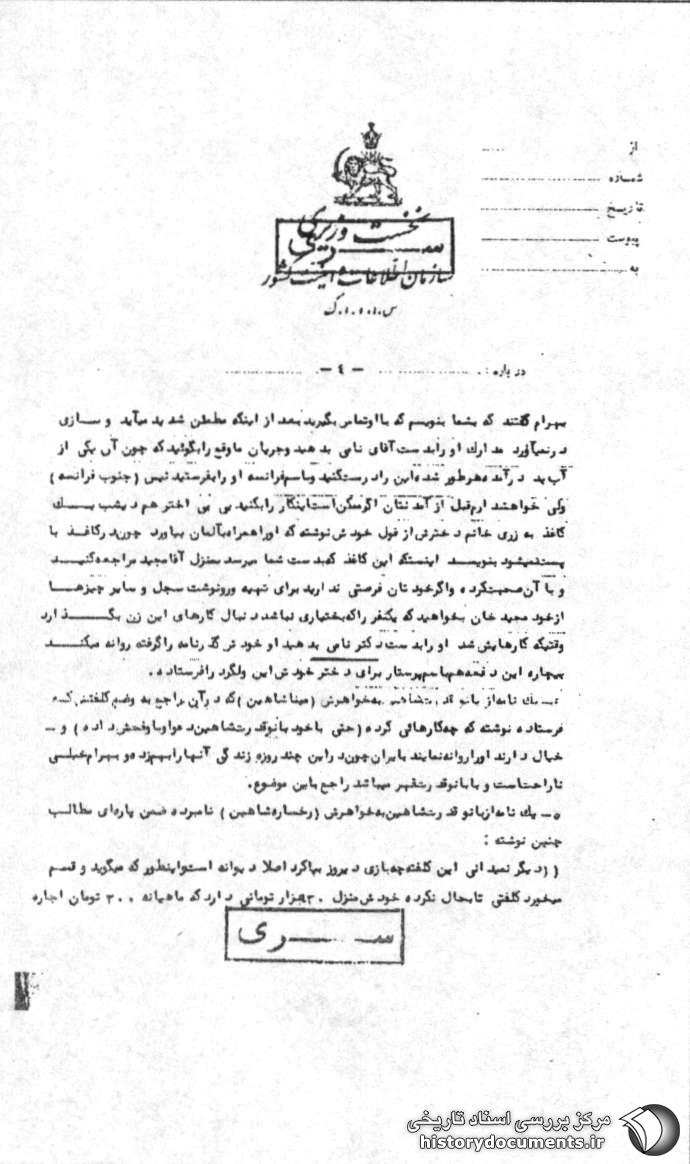 از
شماره
تاریخ
پیوست
به
نخست وزیری
سری
سازمان اطلاعات و امنیت کشور
س.ا.ا.ک
در باره :
- ٤ -
بهرام گفتند که بشما بنویسم که با اوتماس بگیرید بعد از اینکه مطمئن شدید میآید و ســازی
در نمیآورد مدارك او را بدست آقای نامی بدهید وجریان ما وقع را بگوئید که چون آن یکی از
آب بد در آمده هرطور شده این را درست کنید وباسم فرانسه او را بفرستید نیس (جنوب فرانسه)
ولی خواهشدارم قبل از آمدنتان اگر ممکن است اینکار را بکنید بی بی اختر هم دیشب یــك
کاغذ به زری خانم دخترش از قول خودش نوشته که او را همراه بآلمان بیاورد چون در کاغذ با
پست نمیشود بنویسد اینستکه این کاغذ که بدست شما میرسد بمنزل آقا مجید مراجعه کنیــد
و با آن صحبت کرده واگر خودتان فرصتی ندارید برای تهیه ورونوشت سجل و سایر چیزهــا
از خود مجید خان بخواهید که یکنفر را که بختیاری نباشد دنبال کارهای این زن بگــذارد
وقتیکه کارهایش شد او را بدست دکتر نامی بدهید او خودش گذرنامه را گرفته روانه میکنــد
بیچاره این دفعه هم باسم پرستار برای دختر خودش این ولگرد را فرستاده .
یك نامه از بانو قدرت شاهین به خواهرش (مینا شاهین) که در آن راجع به وضع کلفتش که
فرستاده نوشته که چه کارهائی کرده (حتی با خود بانو قدرت شاهین دعوا و با وفحش داده) و -
خیال دارند او را روانه نمایند بایران چون در این چند روزه زندگی آنها را بهم زده و بهرام خیلــی
ناراحت است و با بانو قدرت قهر میباشد راجع باین موضوع.
٥- یك نامه از بانو قدرت شاهین به خواهرش (رخساره شاهین) نامبرده ضمن پاره ای مطالب
چنین نوشته :
((دیگر نمیدانی این کلفته چه بازی دیروز بپا کرد اصلا دیوانه است و اینطور که میگوید و قسم
میخورد کلفتی تا بحال نکرده خودش منزل ۳۰ هزار تومانی دارد که ماهیانه ۳۰۰ تومان اجاره
ســـری
مرکز بررسی اسناد تاریخی
historydocuments.ir